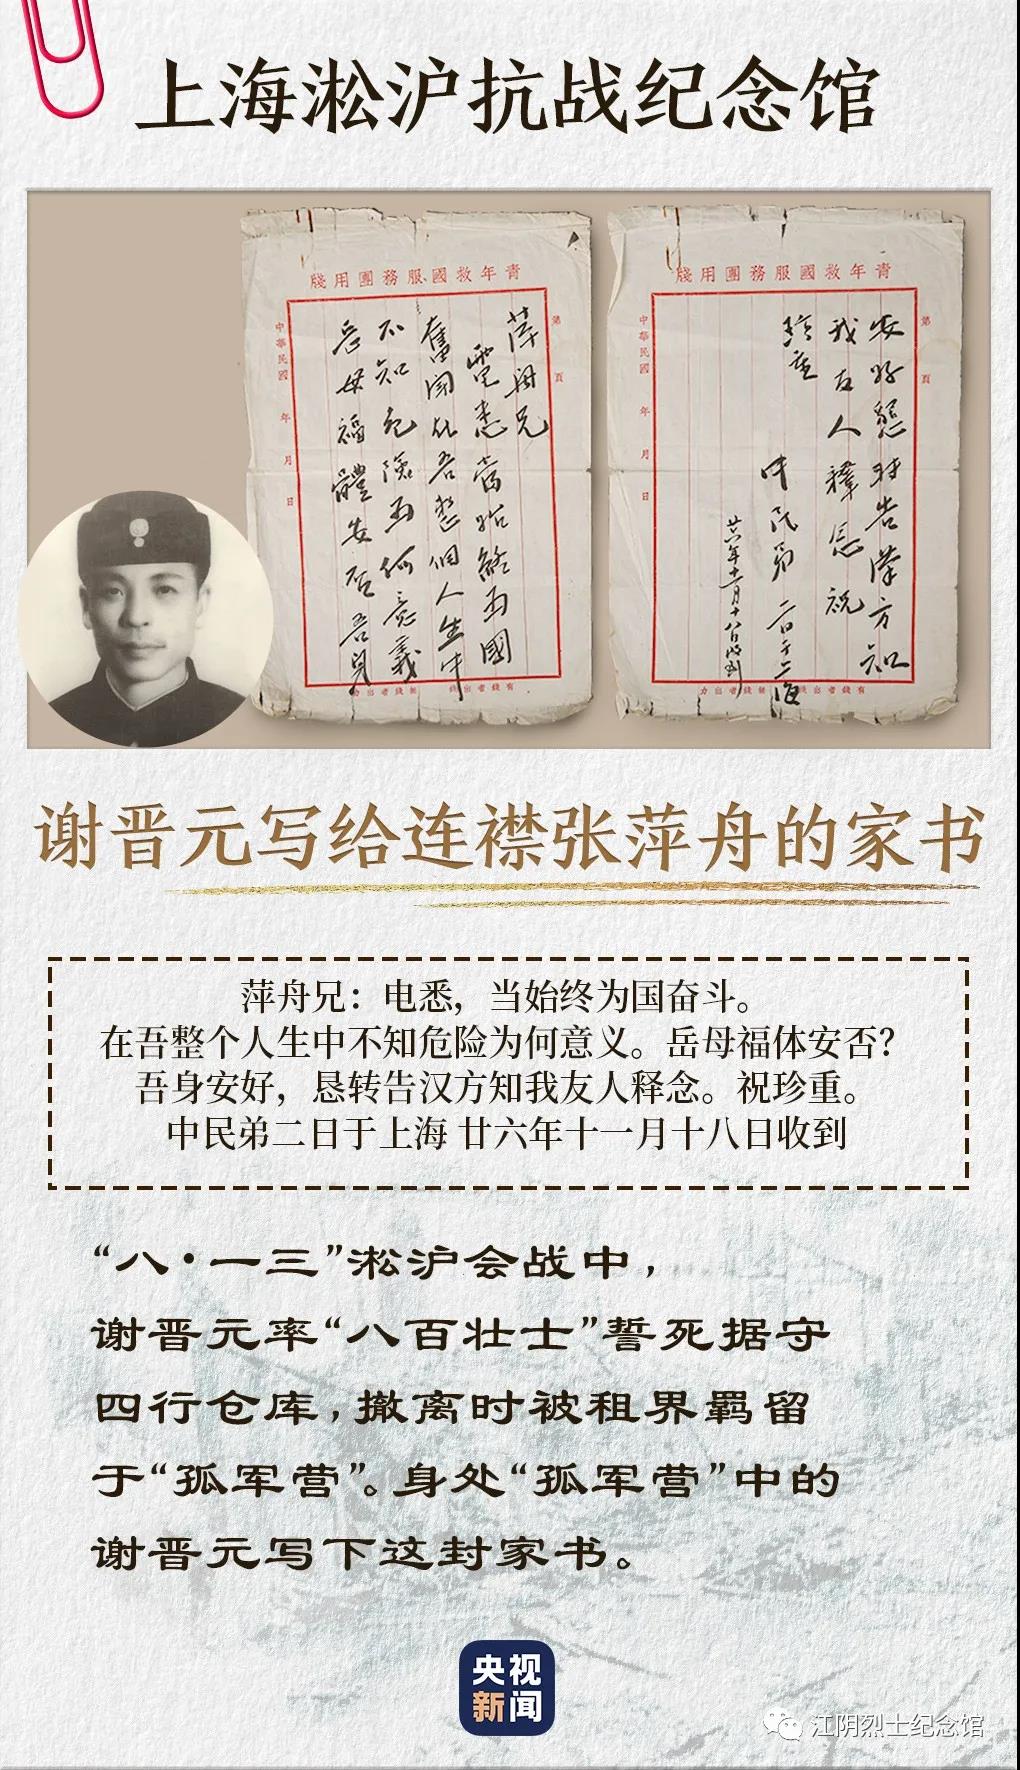 上海淞沪抗战纪念馆
青年救國服務團用牋
第 頁
萍舟兄
電悉當始終為國
奮鬥在吾整個人生中
不知危險為何意義
岳母福體安否吾身
中華民國 年 月 日
有錢者出錢 無錢者出力
青年救國服務團用牋
第 頁
安好懇转告漢方知
我友人釋念祝
珍重
中民弟 二日于上海
廿六年十一月十八日收到
中華民國 年 月 日
有錢者出錢 無錢者出力
谢晋元写给连襟张萍舟的家书
萍舟兄：电悉，当始终为国奋斗。
在吾整个人生中不知危险为何意义。岳母福体安否？
吾身安好，恳转告汉方知我友人释念。祝珍重。
中民弟二日于上海 廿六年十一月十八日收到
“八·一三”淞沪会战中，
谢晋元率“八百壮士”誓死据守
四行仓库，撤离时被租界羁留
于“孤军营”。身处“孤军营”中的
谢晋元写下这封家书。
央视
新闻
江阴烈士纪念馆